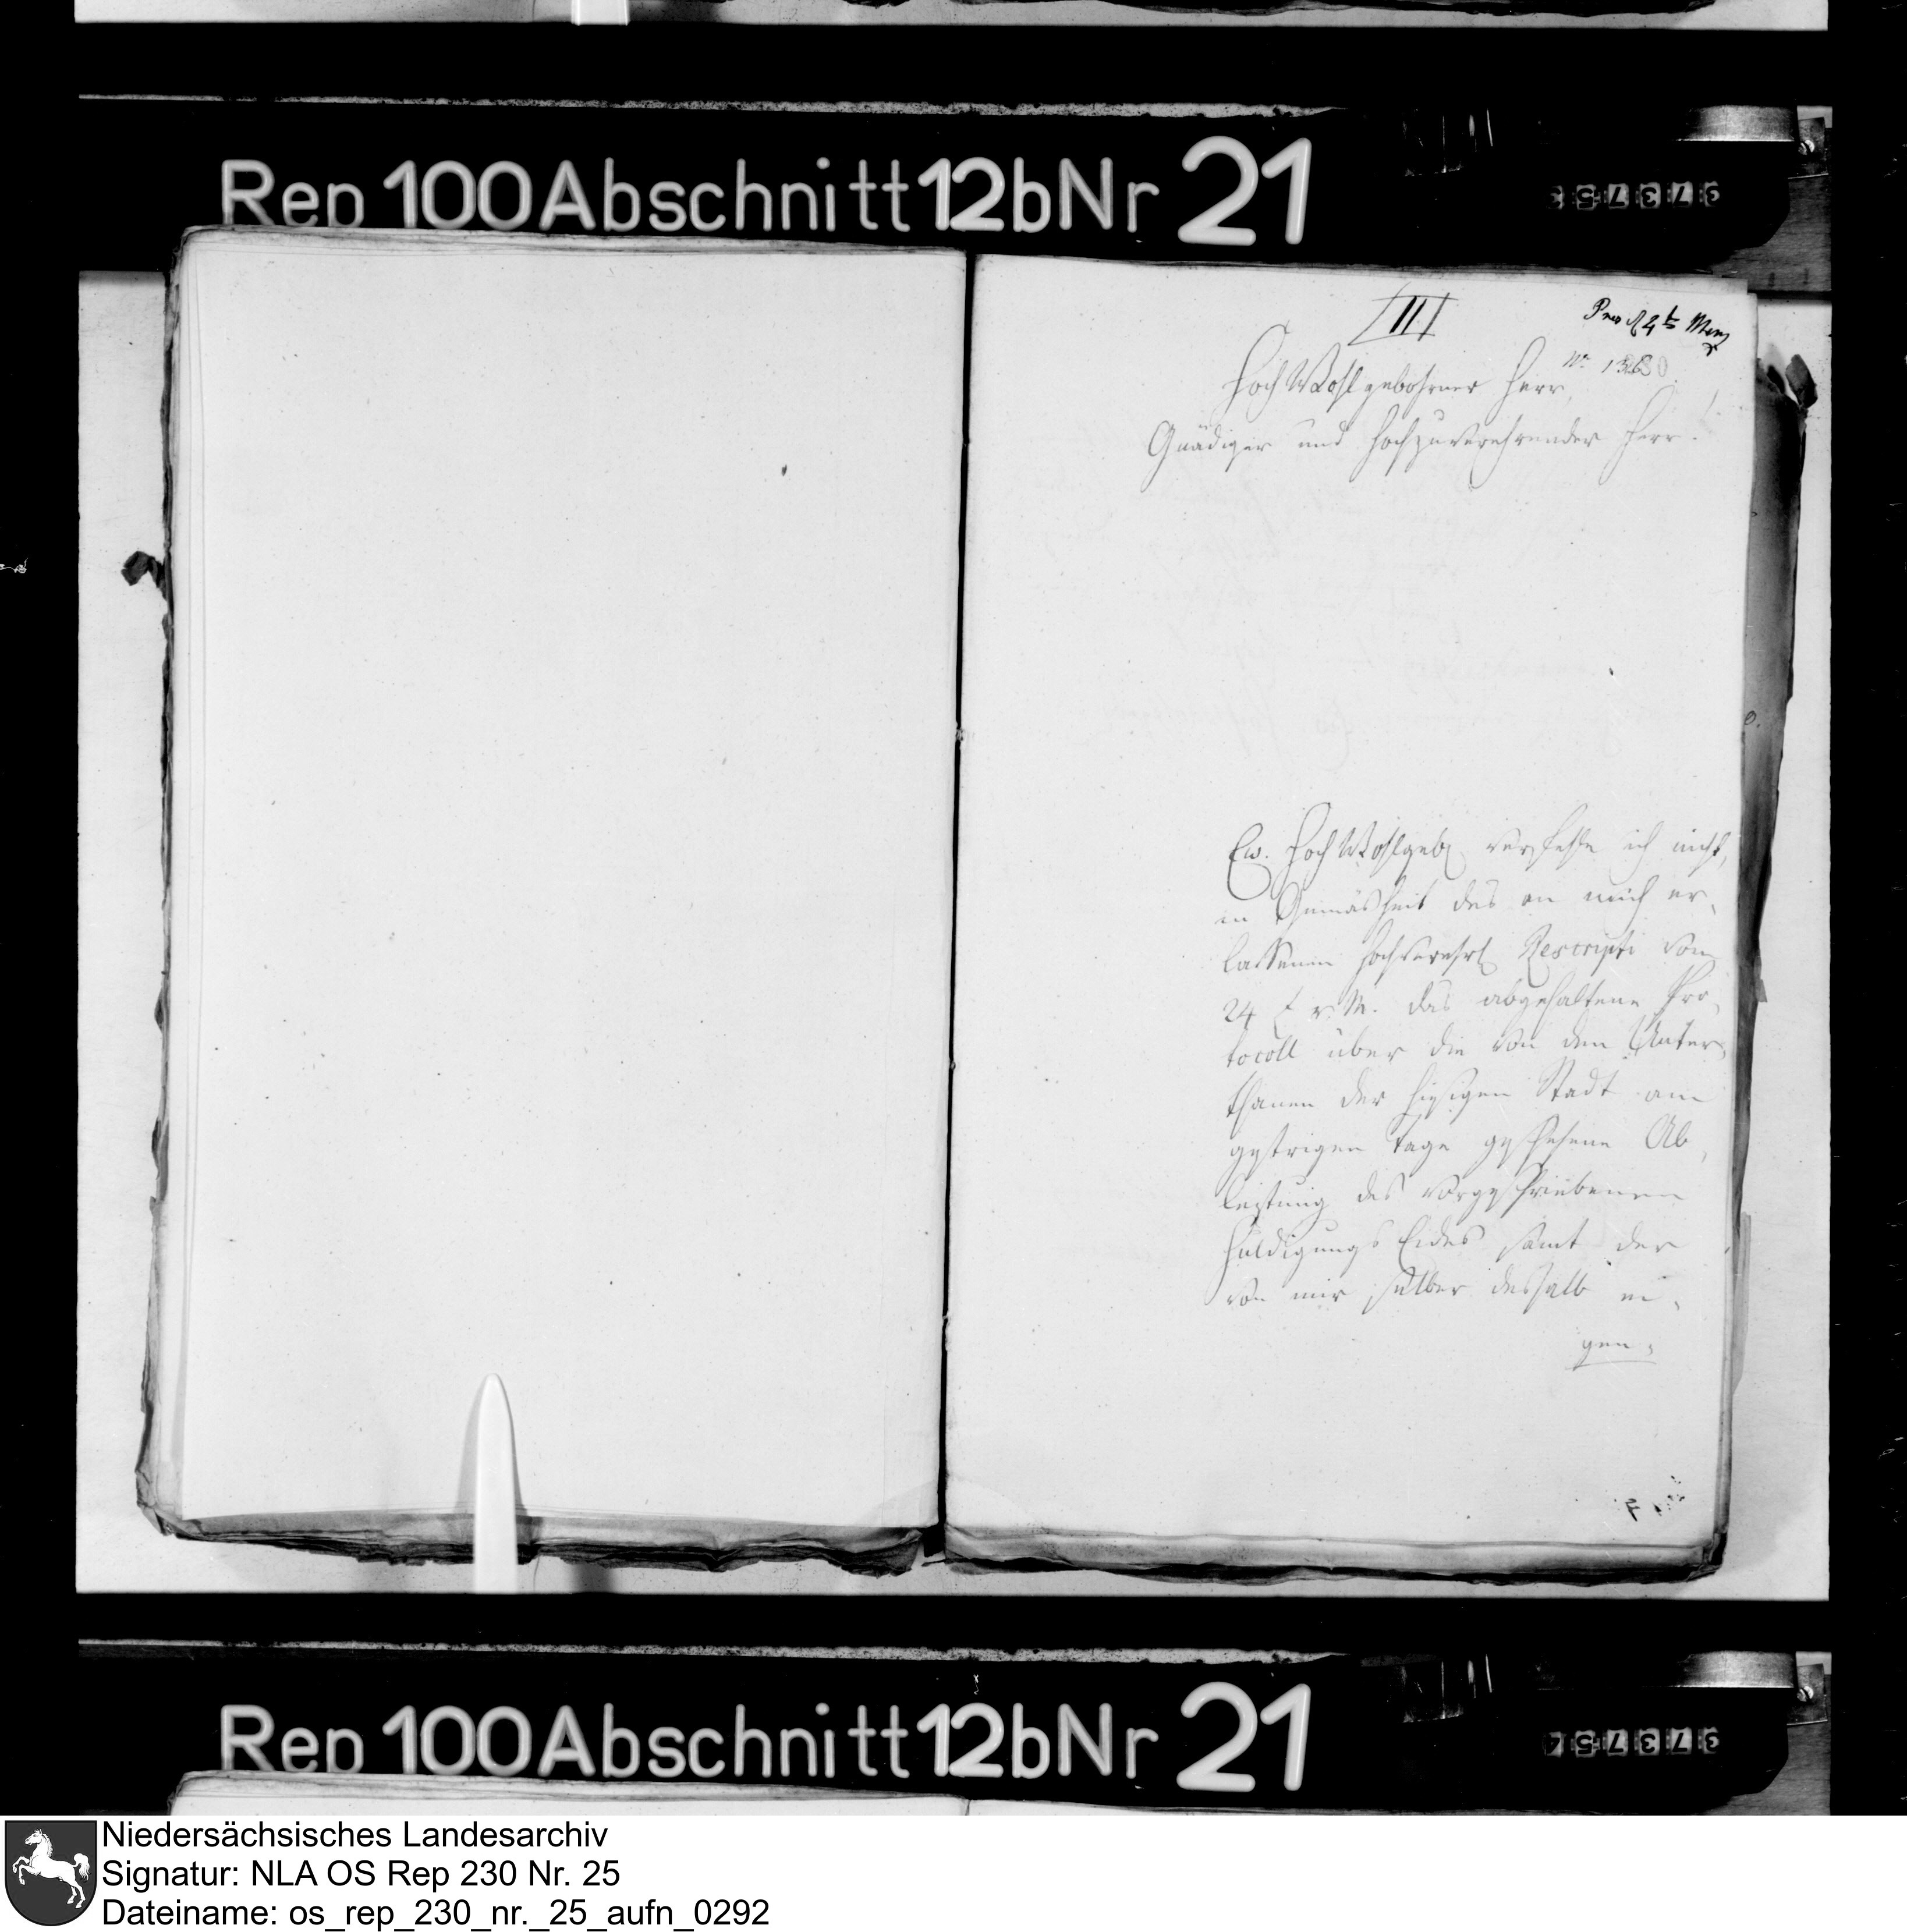 Rep 100 Abschnitt 12b Nr 21
973753
III
Pres d 4t Merz
Nr 1360
HochWohlgebohrner Herr,
Gnädiger und hochzuverehrender Herr!
Ew. HochWohlgeb verfehle ich nicht,
in Gemäsheit des an mich er,
lassenen hochverehrl Rescripti vom
24 t v. M. das abgehaltene Pro,
tocoll über die von den Unter,
thanen der hiesigen Stadt am
gestrigen Tage geschehene Ab,
leistung des vorgeschriebenen
Huldigungs Eides samt der
von mir selber deshalb ei,
gen,
Rep 100 Abschnitt 12b Nr 21
973754
Niedersächsisches Landesarchiv
Signatur: NLA OS Rep 230 Nr. 25
Dateiname: os_rep_230_nr._25_aufn_0292